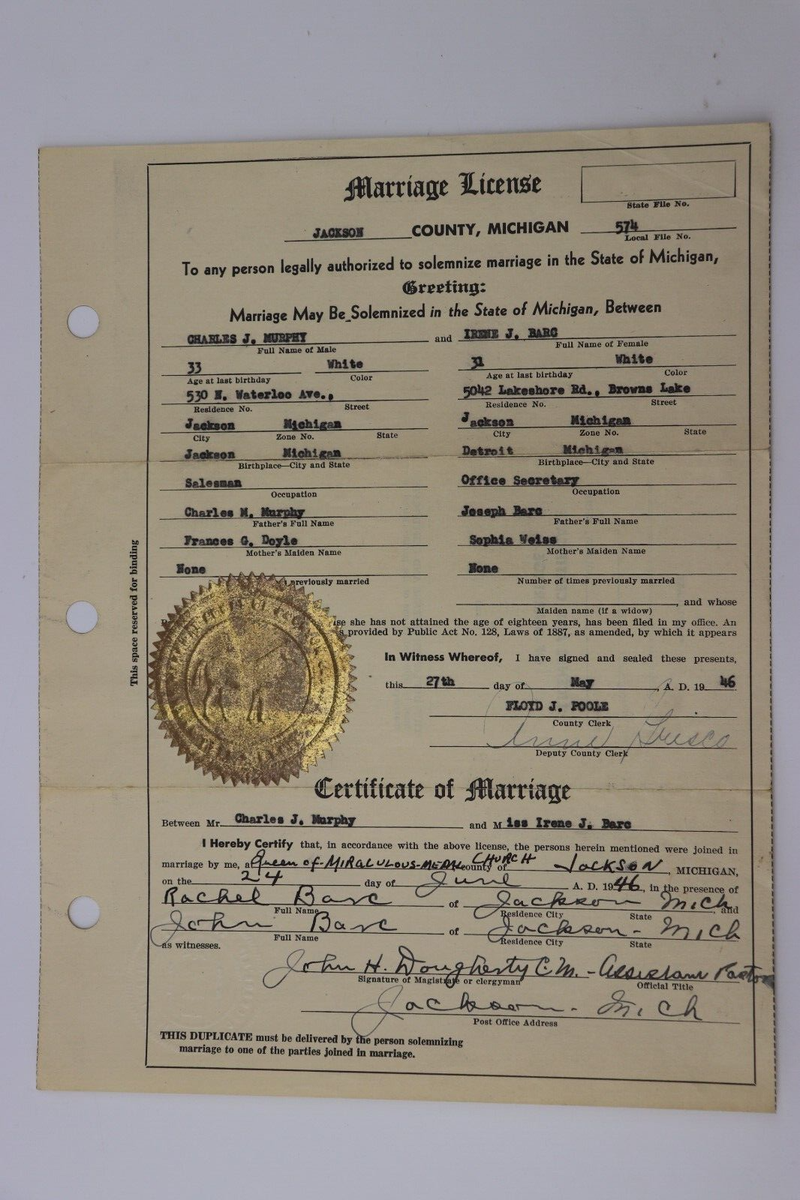 Marriage License
State File No.
JACKSON COUNTY, MICHIGAN 574
Local File No.
To any person legally authorized to solemnize marriage in the State of Michigan,
Greeting:
Marriage May Be Solemnized in the State of Michigan, Between
CHARLES J. MURPHY and IRENE J. BARC
Full Name of Male Full Name of Female
33 White 31 White
Age at last birthday Color Age at last birthday Color
530 N. Waterloo Ave., 5042 Lakeshore Rd., Browns Lake
Residence No. Street Residence No. Street
Jackson Michigan Jackson Michigan
City Zone No. State City Zone No. State
Jackson Michigan Detroit Michigan
Birthplace—City and State Birthplace—City and State
Salesman Office Secretary
Occupation Occupation
Charles M. Murphy Joseph Barc
Father's Full Name Father's Full Name
Frances G. Doyle Sophia Weiss
Mother's Maiden Name Mother's Maiden Name
None None
previously married Number of times previously married
, and whose
Maiden name (if a widow)
she has not attained the age of eighteen years, has been filed in my office. An
provided by Public Act No. 128, Laws of 1887, as amended, by which it appears
In Witness Whereof, I have signed and sealed these presents,
this 27th day of May, A. D. 19 46
FLOYD J. POOLE
County Clerk
Deputy County Clerk
Certificate of Marriage
Between Mr. Charles J. Murphy and Miss Irene J. Barc
I Hereby Certify that, in accordance with the above license, the persons herein mentioned were joined in
marriage by me, at Queen of MIRACULOUS-MEDAL CHURCH county of JACKSON, MICHIGAN,
on the 24 day of June A. D. 1946, in the presence of
Rachel Barc of Jackson Mich. and
Full Name Residence City State
John Barc of Jackson - Mich
Full Name Residence City State
as witnesses.
John H. Dougherty C.M. - Assistant Pastor
Signature of Magistrate or clergyman Official Title
Jackson - Mich
Post Office Address
THIS DUPLICATE must be delivered by the person solemnizing
marriage to one of the parties joined in marriage.
This space reserved for binding